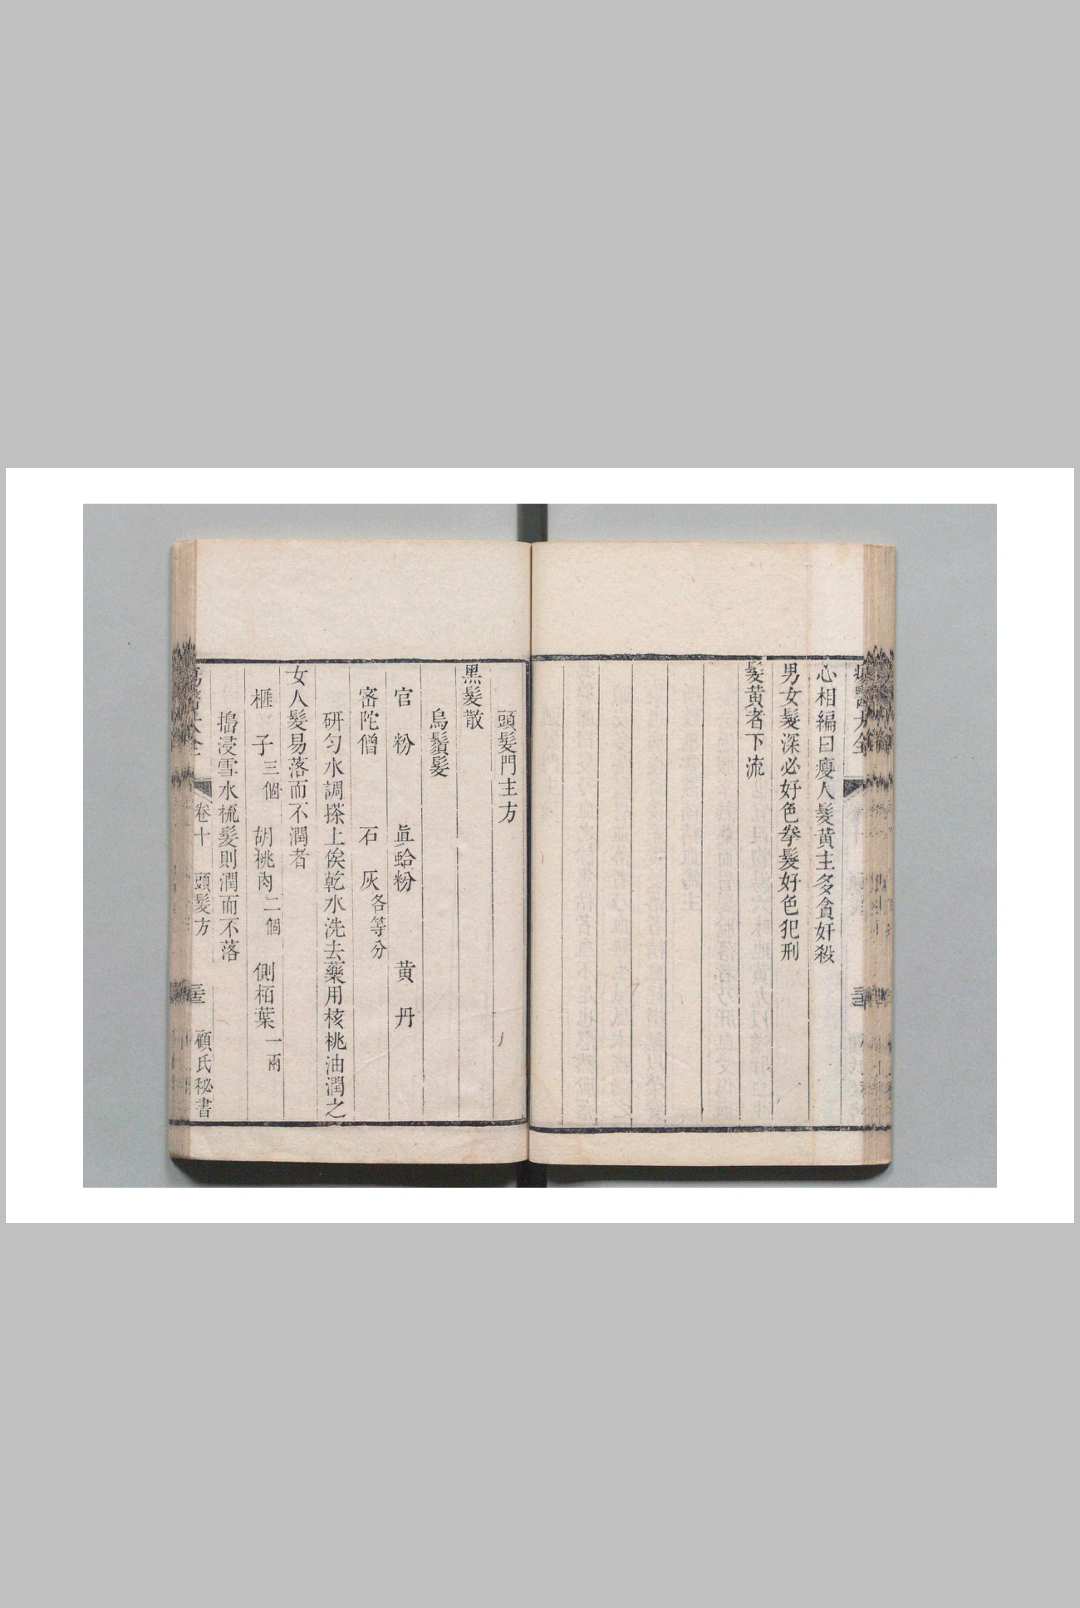 心相編曰瘦人髮黃主多貪奸殺
男女髮深必好色拳髮好色犯刑
髮黃者下流
頭髮門主方
黑髮散
烏鬚髮
官粉 眞蛤粉 黄丹
密陀僧 石灰各等分
研匀水調搽上俟乾水洗去藥用核桃油潤之
女人髮易落而不潤者
榧子三個 胡桃肉二個 側栢葉一兩
搗浸雪水梳髮則潤而不落
大全 卷十 頭髮方 顧氏秘書